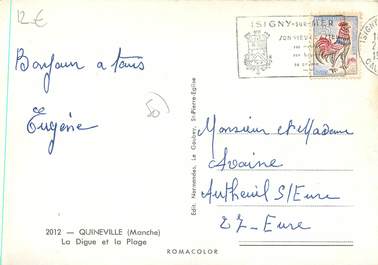 12 €
ISIGNY-SUR-MER
SON VIEUX
ISIGNY
Bonjour a tous
Eugène
50
Monsieur et Madame
Avoine
Autheuil S/Eure
27 - Eure
Edit. Normandes. Le Goubey, St-Pierre-Eglise
2012 — QUINEVILLE (Manche)
La Digue et la Plage
ROMACOLOR